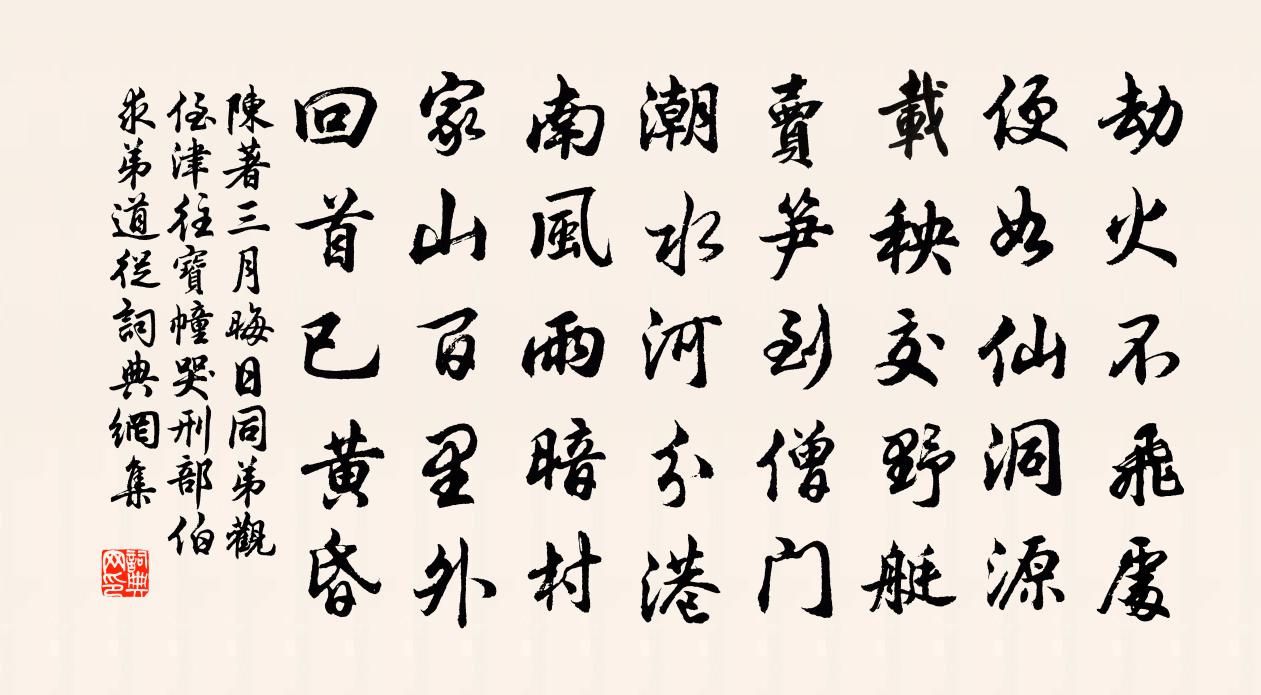 劫火不飛處
便如仙洞源
載秧交野艇
賣笋到僧門
潮水河分港
南風雨暗村
家山百里外
回首已黃昏
陳著三月晦日同弟觀
侄津往寶幢哭刑部伯
求弟道從詞典網集
詞典网印